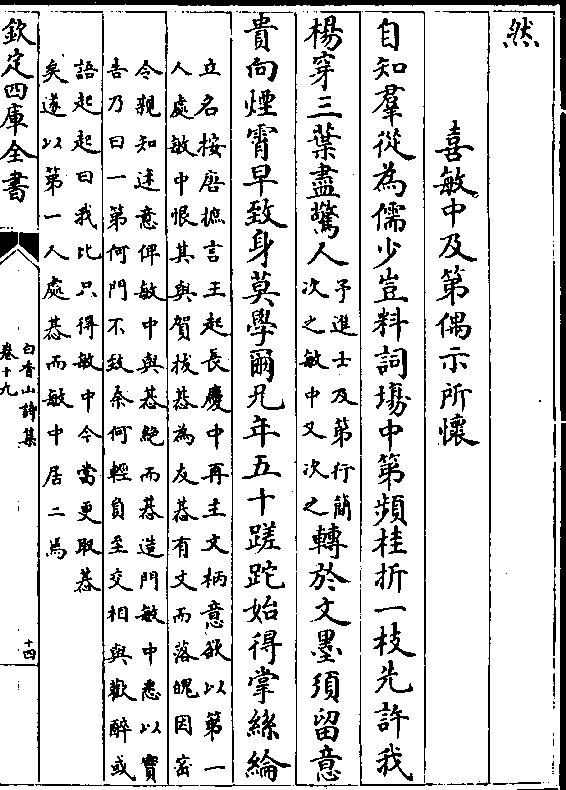 然
喜敏中及第偶示所懷
自知羣從為儒少豈料詞塲中第頻桂折一枝先許我
楊穿三葉盡驚人
予進士及第行簡
次之敏中又次之
轉於文墨須留意
貴向煙霄早致身莫學爾兄年五十蹉跎始得掌絲綸
立名按唐摭言王起長慶中再主文柄意欲以第一
人處敏中恨其與賀拔惎為友惎有文而落魄因宻
令親知逹意俾敏中與惎絶而惎造門敏中悉以實
告乃曰一第何門不致奈何輕負至交相與歡醉或
語起起曰我比只得敏中今當更取惎
矣遂以第一人處惎而敏中居二焉
欽定四庫全書
白香山詩集
卷十九
十四